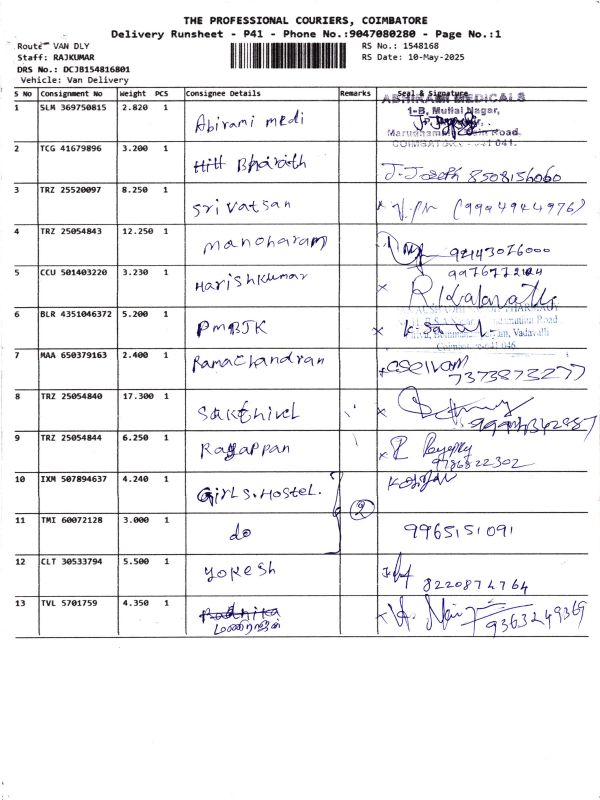 THE PROFESSIONAL COURIERS, COIMBATORE
Delivery Runsheet - P41 - Phone No.:9047080280 - Page No.:1
Route VAN DLY
RS No.: 1548168
Staff: RAJKUMAR
RS Date: 10-May-2025
DRS No.: DCJB154816801
Vehicle: Van Delivery
S No Consignment No Weight PCS Consignee Details Remarks Seal & Signature
1 SLM 369750815 2.820 1 Abirami medi
ABHIRAMI MEDICALS
1-B, Mullai Nagar,
Road.
COIMBATORE 641 041.
2 TCG 41679896 3.200 1 Bharath J. Joseph 8508156060
3 TRZ 25520097 8.250 1 Srivatsan x (9994944976)
4 TRZ 25054843 12.250 1 manoharam 92143076000
5 CCU 501403220 3.230 1 Harishkumar x
6 BLR 4351046372 5.200 1 PMBJK x
Road
Vadavalli
7 MAA 650379163 2.400 1 Ramachandran x Selvam
7373873277
8 TRZ 25054840 17.300 1 Sakthivel x
9 TRZ 25054844 6.250 1 Ragappan x R
9786822302
10 IXM 507894637 4.240 1 Girls.Hostel.
2
11 TMI 60072128 3.000 1 do 9965151091
12 CLT 30533794 5.500 1 Yokesh
8220874764
13 TVL 5701759 4.350 1 Radhika x
9363249369